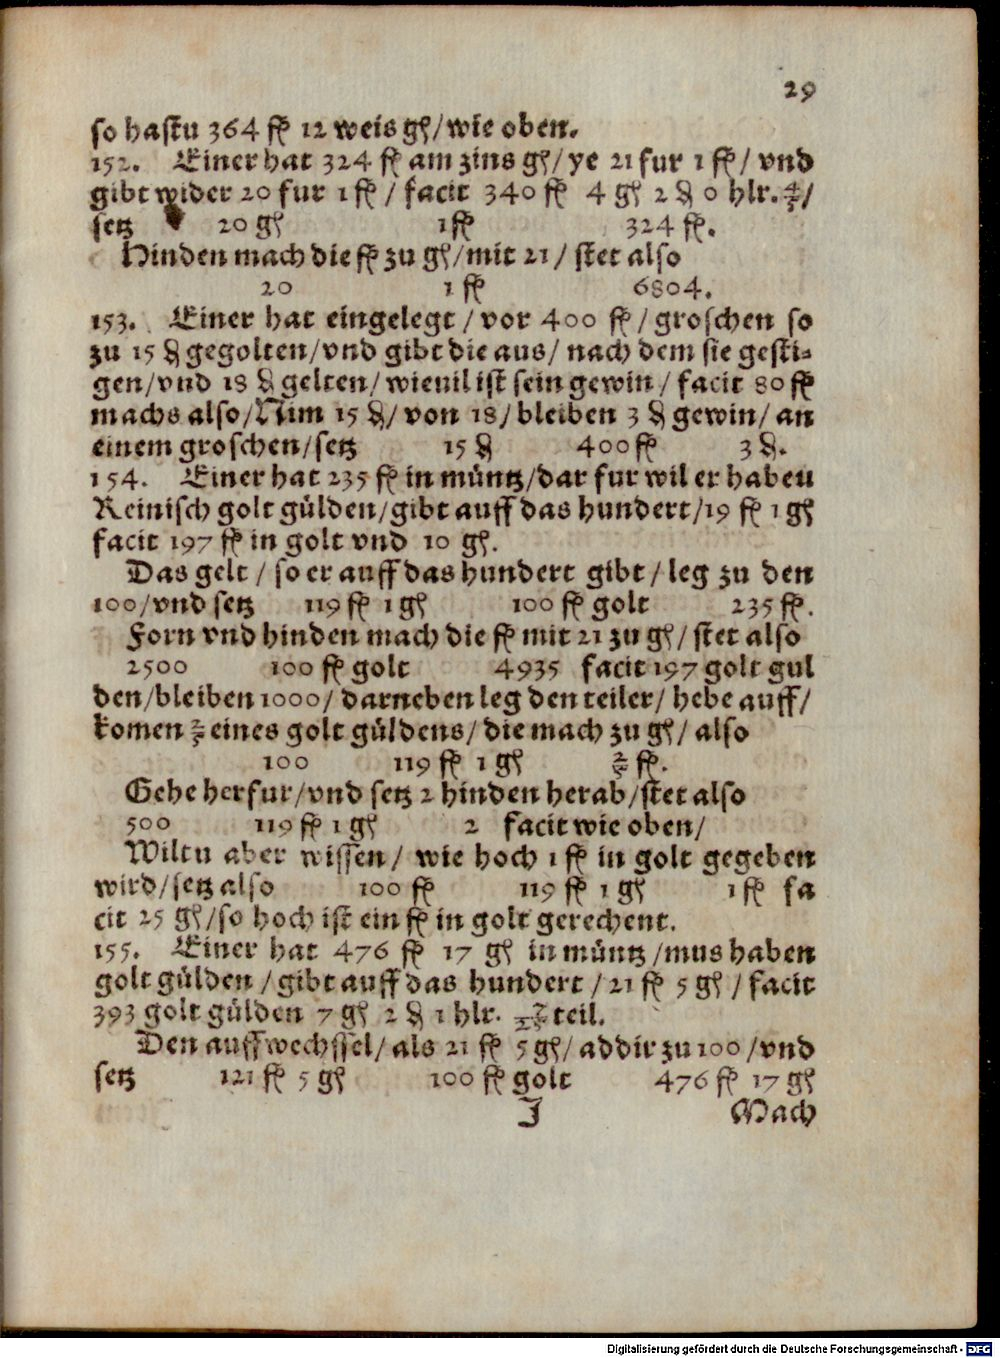 29
so hastu 364 fl 12 weis gℓ/wie oben.
152. Einer hat 324 fl am zins gℓ/ye 21 fur 1 fl/ vnd
gibt wider 20 fur 1 fl/ facit 340 fl 4 gℓ 2 ₰ 0 hlr. 4/5/
setz 20 gℓ 1 fl 324 fl.
Hinden mach die fl zu gℓ/mit 21/ stet also
20 1 fl 6804.
153. Einer hat eingelegt/vor 400 fl/groschen so
zu 15 ₰ gegolten/vnd gibt die aus/ nach dem sie gesti⸗
gen/vnd 18 ₰ gelten/wieuil ist sein gewin/ facit 80 fl
machs also/Nim 15 ₰/ von 18/bleiben 3 ₰ gewin/an
einem groschen/setz 15 ₰ 400 fl 3 ₰.
154. Einer hat 235 fl in müntz/dar fur wil er haben
Reinisch golt gülden/gibt auff das hundert/19 fl 1 gℓ
facit 197 fl in golt vnd 10 gℓ.
Das gelt/ so er auff das hundert gibt/leg zu den
100/vnd setz 119 fl 1 gℓ 100 fl golt 235 fl.
Forn vnd hinden mach die fl mit 21 zu gℓ/ stet also
2500 100 fl golt 4935 facit 197 golt gul
den/bleiben 1000/ darneben leg den teiler/ hebe auff/
komen 2/5 eines golt güldens/ die mach zu gℓ/ also
100 119 fl 1 gℓ 2/5 fl.
Gehe herfur/vnd setz 2 hinden herab/stet also
500 119 fl 1 gℓ 2 facit wie oben/
Wiltu aber wissen/ wie hoch 1 fl in golt gegeben
wird/setz also 100 fl 119 fl 1 gℓ 1 fl fa
cit 25 gℓ/so hoch ist ein fl in golt gerechent.
155. Einer hat 476 fl 17 gℓ in müntz/mus haben
golt gülden/gibt auff das hundert/21 fl 5 gℓ/facit
393 golt gülden 7 gℓ 2 ₰ 1 hlr. teil.
Den auffwechssel/als 21 fl 5 gℓ/addir zu 100/vnd
setz 121 fl 5 gℓ 100 fl golt 476 fl 17 gℓ
J Mach
Digitalisierung gefördert durch die Deutsche Forschungsgemeinschaft - DFG